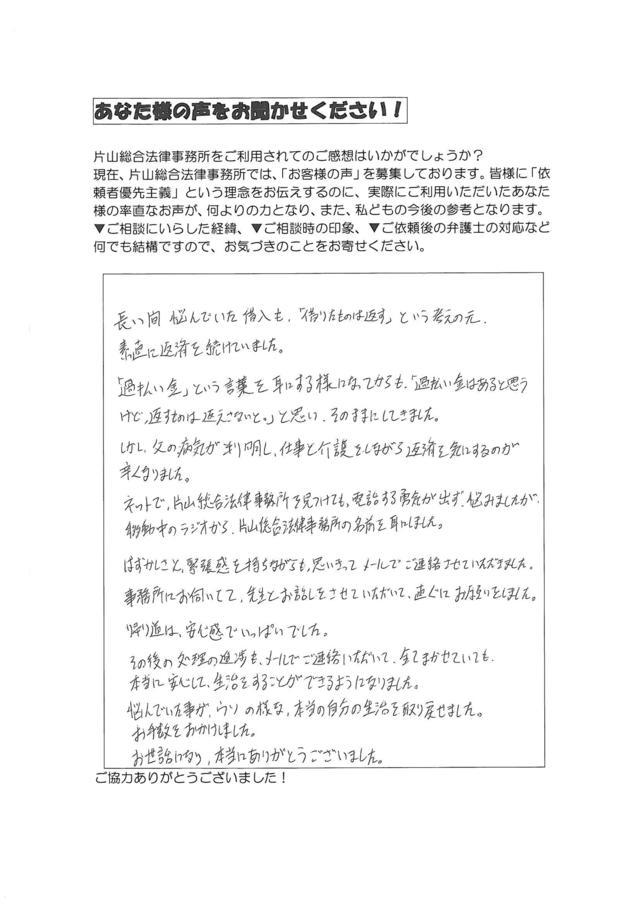 あなた様の声をお聞かせください！
片山総合法律事務所をご利用されてのご感想はいかがでしょうか？
現在、片山総合法律事務所では、「お客様の声」を募集しております。皆様に「依
頼者優先主義」という理念をお伝えするのに、実際にご利用いただいたあなた
様の率直なお声が、何よりの力となり、また、私どもの今後の参考となります。
▼ご相談にいらした経緯、▼ご相談時の印象、▼ご依頼後の弁護士の対応など
何でも結構ですので、お気づきのことをお寄せください。
長い間 悩んでいた借入も、「借りたものは返す」という考えの元、
素直に返済を続けていました。
「過払い金」という言葉を耳にする様になってからも、「過払い金はあると思う
けど、返すものは返えさないと。」と思い、そのままにしてきました。
しかし、父の病気が判明し、仕事と介護をしながら返済を気にするのが
辛くなりました。
ネットで、片山総合法律事務所を見つけても、電話する勇気が出ず、悩みましたが、
移動中のラジオから、片山総合法律事務所の名前を耳にしました。
はずかしさと、緊張感を持ちながらも、思いきってメールでご連絡させていただきました。
事務所にお伺いして、先生とお話しをさせていただいて、直ぐにお願いをしました。
帰り道は、安心感でいっぱいでした。
その後の処理の進捗も、メールでご連絡いただいて、全てまかせていても、
本当に安心して、生活をすることができるようになりました。
悩んでいた事が、ウソの様な、本当の自分の生活を取り戻せました。
お手数をおかけしました。
お世話になり、本当にありがとうございました。
ご協力ありがとうございました！